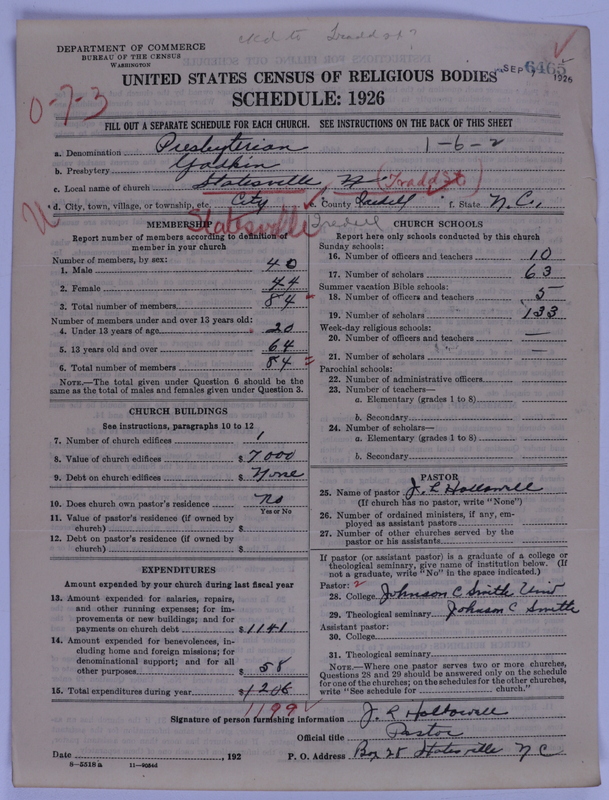 ckd to Tradd st?
DEPARTMENT OF COMMERCE
BUREAU OF THE CENSUS
WASHINGTON
SEP 1926
6465
UNITED STATES CENSUS OF RELIGIOUS BODIES
SCHEDULE: 1926
0-7-3
FILL OUT A SEPARATE SCHEDULE FOR EACH CHURCH. SEE INSTRUCTIONS ON THE BACK OF THIS SHEET
a. Denomination Presbyterian 1-6-2
b. Presbytery Yadkin
c. Local name of church Statesville (Tradd St)
d. City, town, village, or township, etc. City e. County Iredell f. State N.C.,
Statesville Iredell
MEMBERSHIP
Report number of members according to definition of member in your church
Number of members, by sex:
1. Male 40
2. Female 44
3. Total number of members 84
Number of members under and over 13 years old:
4. Under 13 years of age 20
5. 13 years old and over 64
6. Total number of members 84
NOTE.—The total given under Question 6 should be the same as the total of males and females given under Question 3.
CHURCH BUILDINGS
See instructions, paragraphs 10 to 12
7. Number of church edifices 1
8. Value of church edifices $ 7000
9. Debt on church edifices $ None
10. Does church own pastor's residence No
Yes or No
11. Value of pastor's residence (if owned by church) $
12. Debt on pastor's residence (if owned by church) $
EXPENDITURES
Amount expended by your church during last fiscal year
13. Amount expended for salaries, repairs, and other running expenses; for improvements or new buildings; and for payments on church debt $ 1141
14. Amount expended for benevolences, including home and foreign missions; for denominational support; and for all other purposes $ 58
15. Total expenditures during year $ 1206
1199
CHURCH SCHOOLS
Report here only schools conducted by this church
Sunday schools:
16. Number of officers and teachers 10
17. Number of scholars 63
Summer vacation Bible schools:
18. Number of officers and teachers 5
19. Number of scholars 133
Week-day religious schools:
20. Number of officers and teachers —
21. Number of scholars —
Parochial schools:
22. Number of administrative officers
23. Number of teachers—
a. Elementary (grades 1 to 8)
b. Secondary
24. Number of scholars—
a. Elementary (grades 1 to 8)
b. Secondary
PASTOR
25. Name of pastor J. L Hollowell
(If church has no pastor, write "None")
26. Number of ordained ministers, if any, employed as assistant pastors
27. Number of other churches served by the pastor or his assistants
If pastor (or assistant pastor) is a graduate of a college or theological seminary, give name of institution below. (If not a graduate, write "No" in the space indicated.)
Pastor: 2
28. College Johnson C Smith Univ
29. Theological seminary Johnson C Smith
Assistant pastor:
30. College
31. Theological seminary
NOTE.—Where one pastor serves two or more churches, Questions 28 and 29 should be answered only on the schedule for one of the churches; on the schedules for the other churches, write "See schedule for church."
Signature of person furnishing information J. L Hollowell
Official title Pastor
Date , 192 P. O. Address Box 25 Statesville N C
8-5518 a